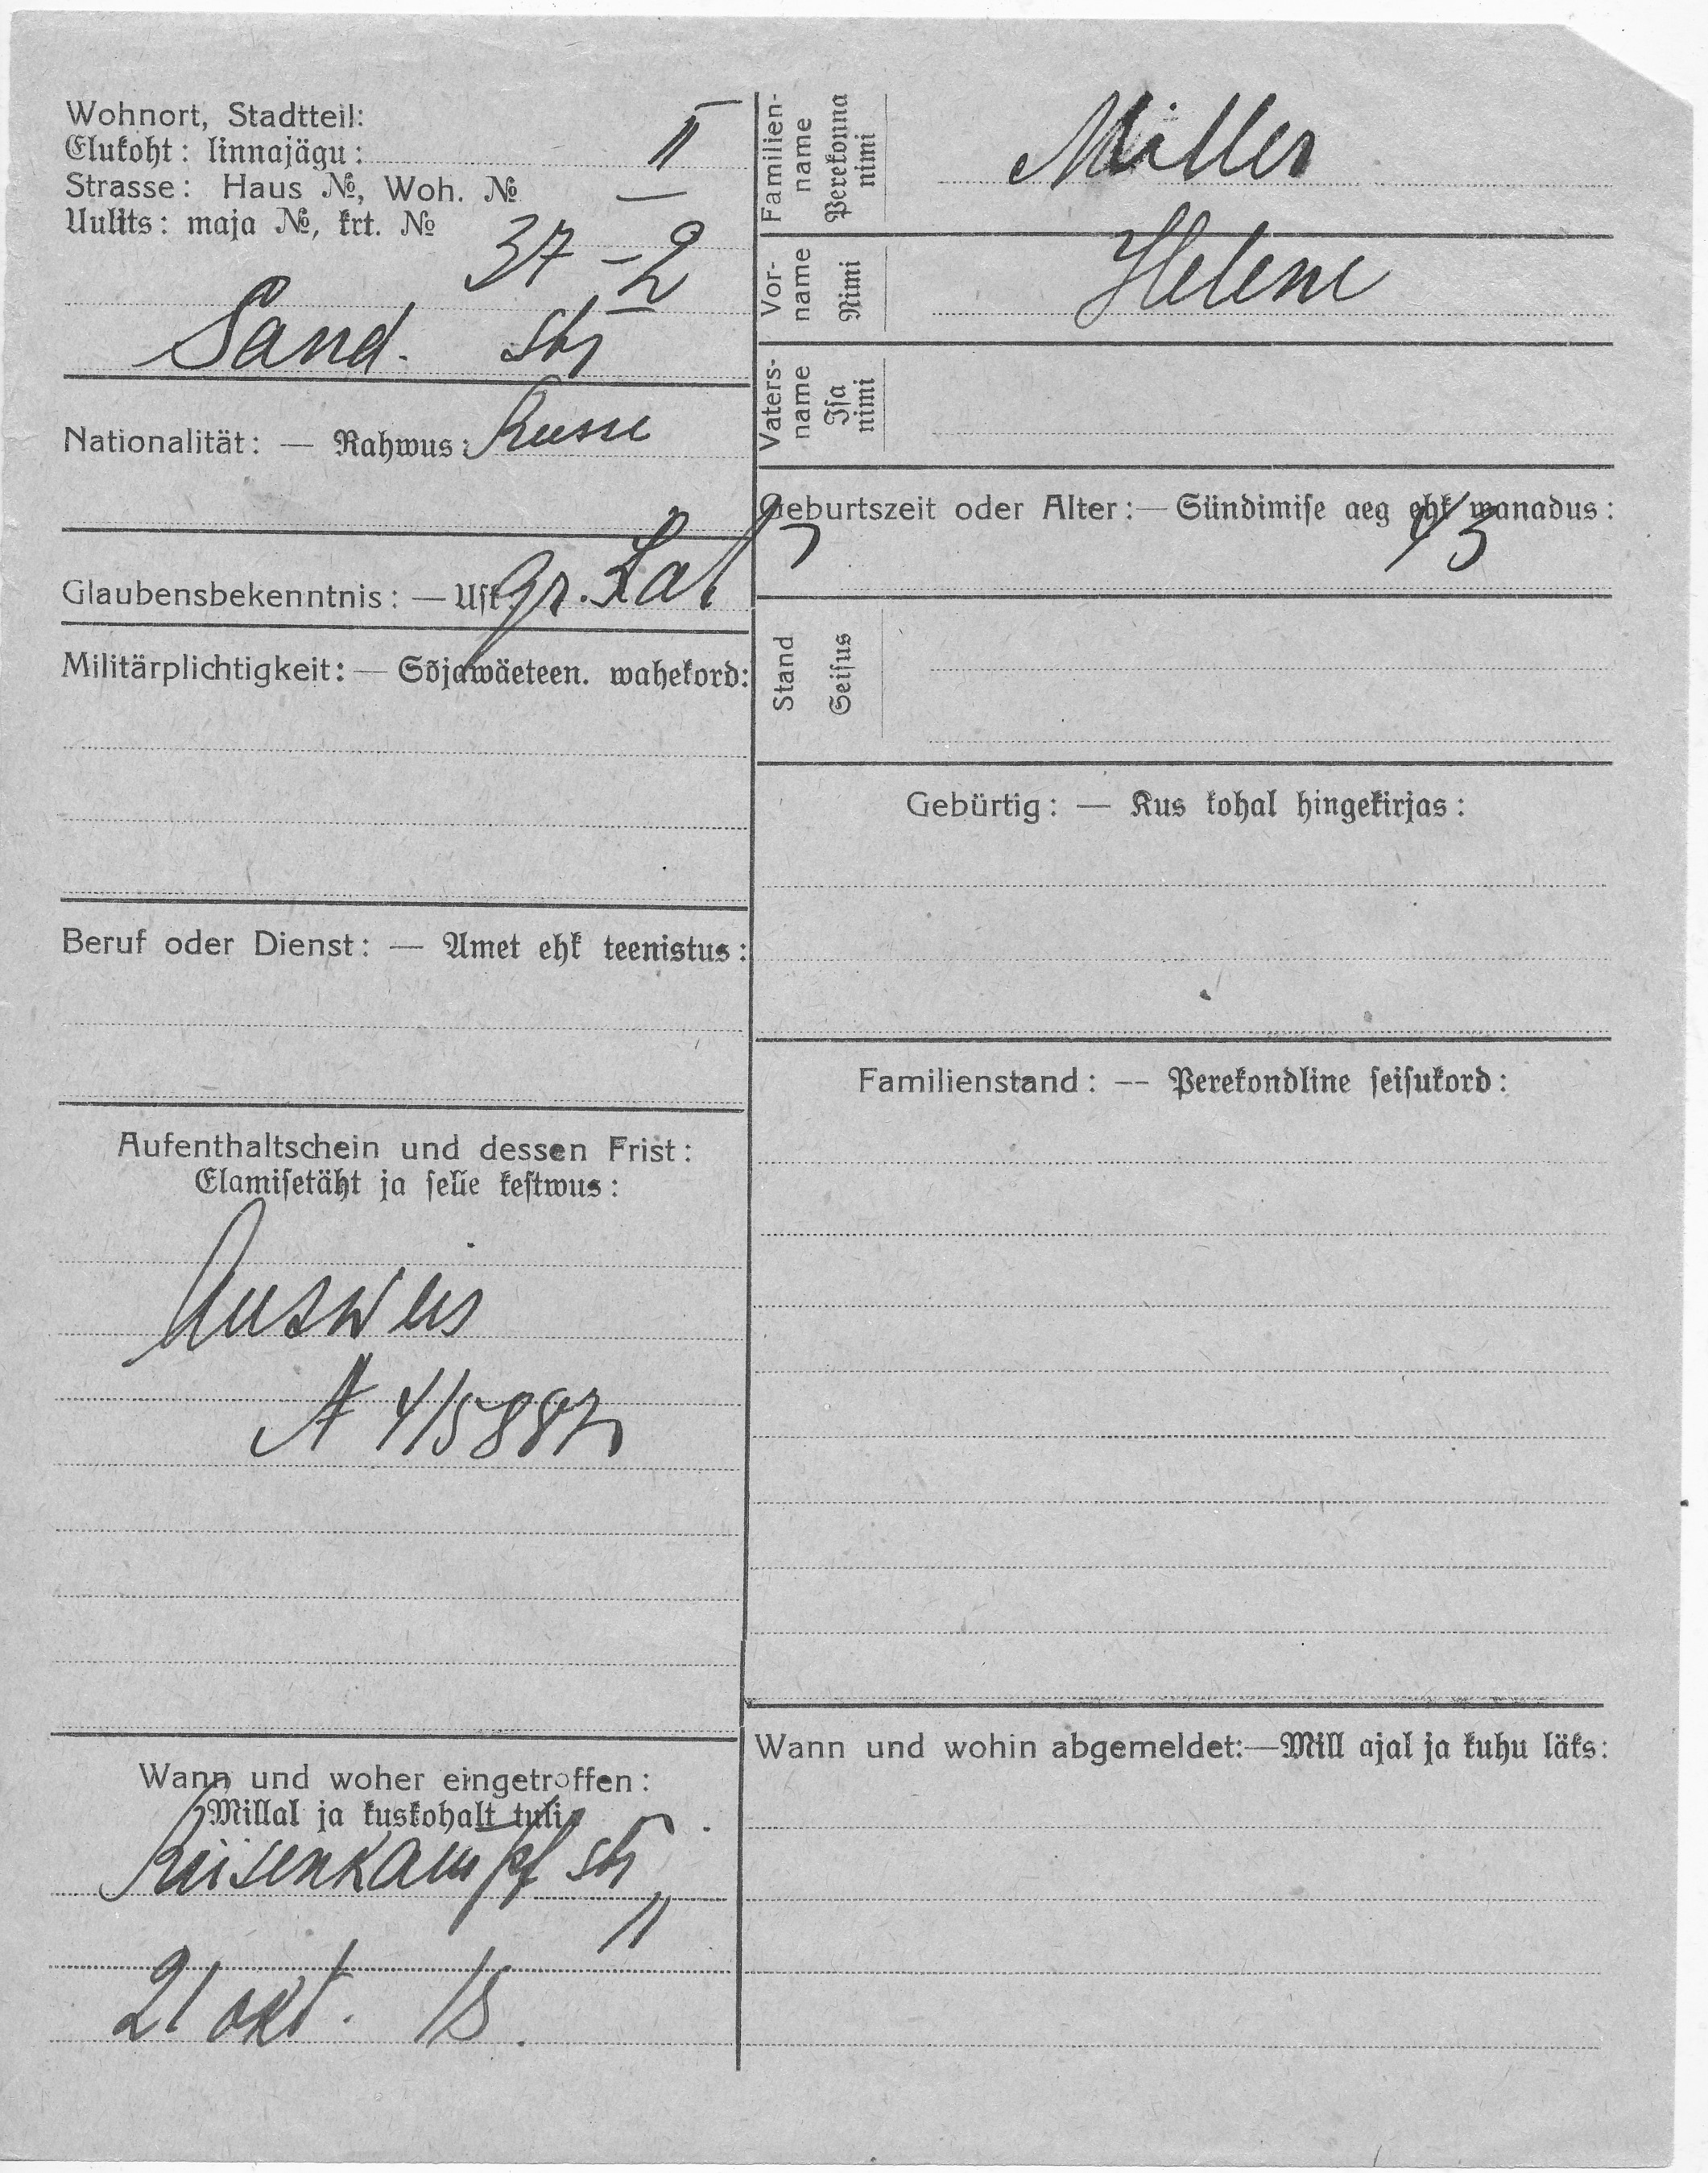 Wohnort, Stadtteil:
Elukoht: linnajägu: II
Strasse: Haus №, Woh. №
Uulits: maja №, krt. №
37 – 2
Sand. Str
Nationalität: — Rahwus: Russe
Glaubensbekenntnis: — Usk gr. Kat
Militärplichtigkeit: — Sõjawäeteen. wahekord:
Beruf oder Dienst: — Amet ehk teenistus:
Aufenthaltschein und dessen Frist:
Elamisetäht ja selle kestwus:
Ausweis
A 4/5887
Wann und woher eingetroffen:
Millal ja kuskohalt tuli
Reisenkampf str
11
21 okt. 18.
Familien-
name
Perekonna
nimi
Miller
Vor-
name
Nimi
Helene
Vaters-
name
Isa
nimi
Geburtszeit oder Alter: — Sündimise aeg ehk wanadus:
43
Stand
Seisus
Gebürtig: — Kus kohal hingekirjas:
Familienstand: -- Perekondline seisukord:
Wann und wohin abgemeldet: — Mill ajal ja kuhu läks: